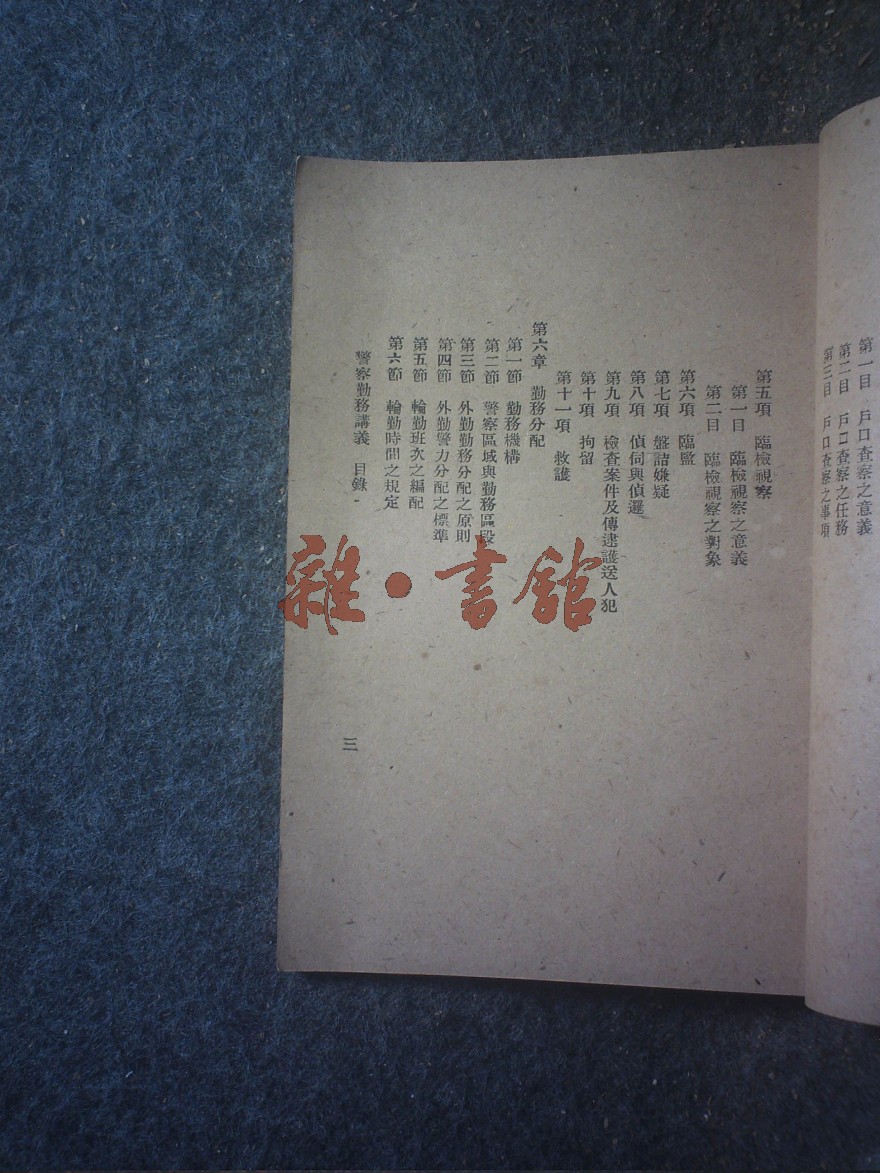 第一目　戶口查察之意義
第二目　戶口查察之任務
第三目　戶口查察之事項
第五項　臨檢視察
第一目　臨檢視察之意義
第二目　臨檢視察之對象
第六項　臨監
第七項　盤詰嫌疑
第八項　偵伺與偵邏
第九項　檢查案件及傳逮護送人犯
第十項　拘留
第十一項　救護
第六章　勤務分配
第一節　勤務機構
第二節　警察區域與勤務區段
第三節　外勤勤務分配之原則
第四節　外勤警力分配之標準
第五節　輪勤班次之編配
第六節　輪勤時間之規定
警察勤務講義　目錄
三
雜・書館